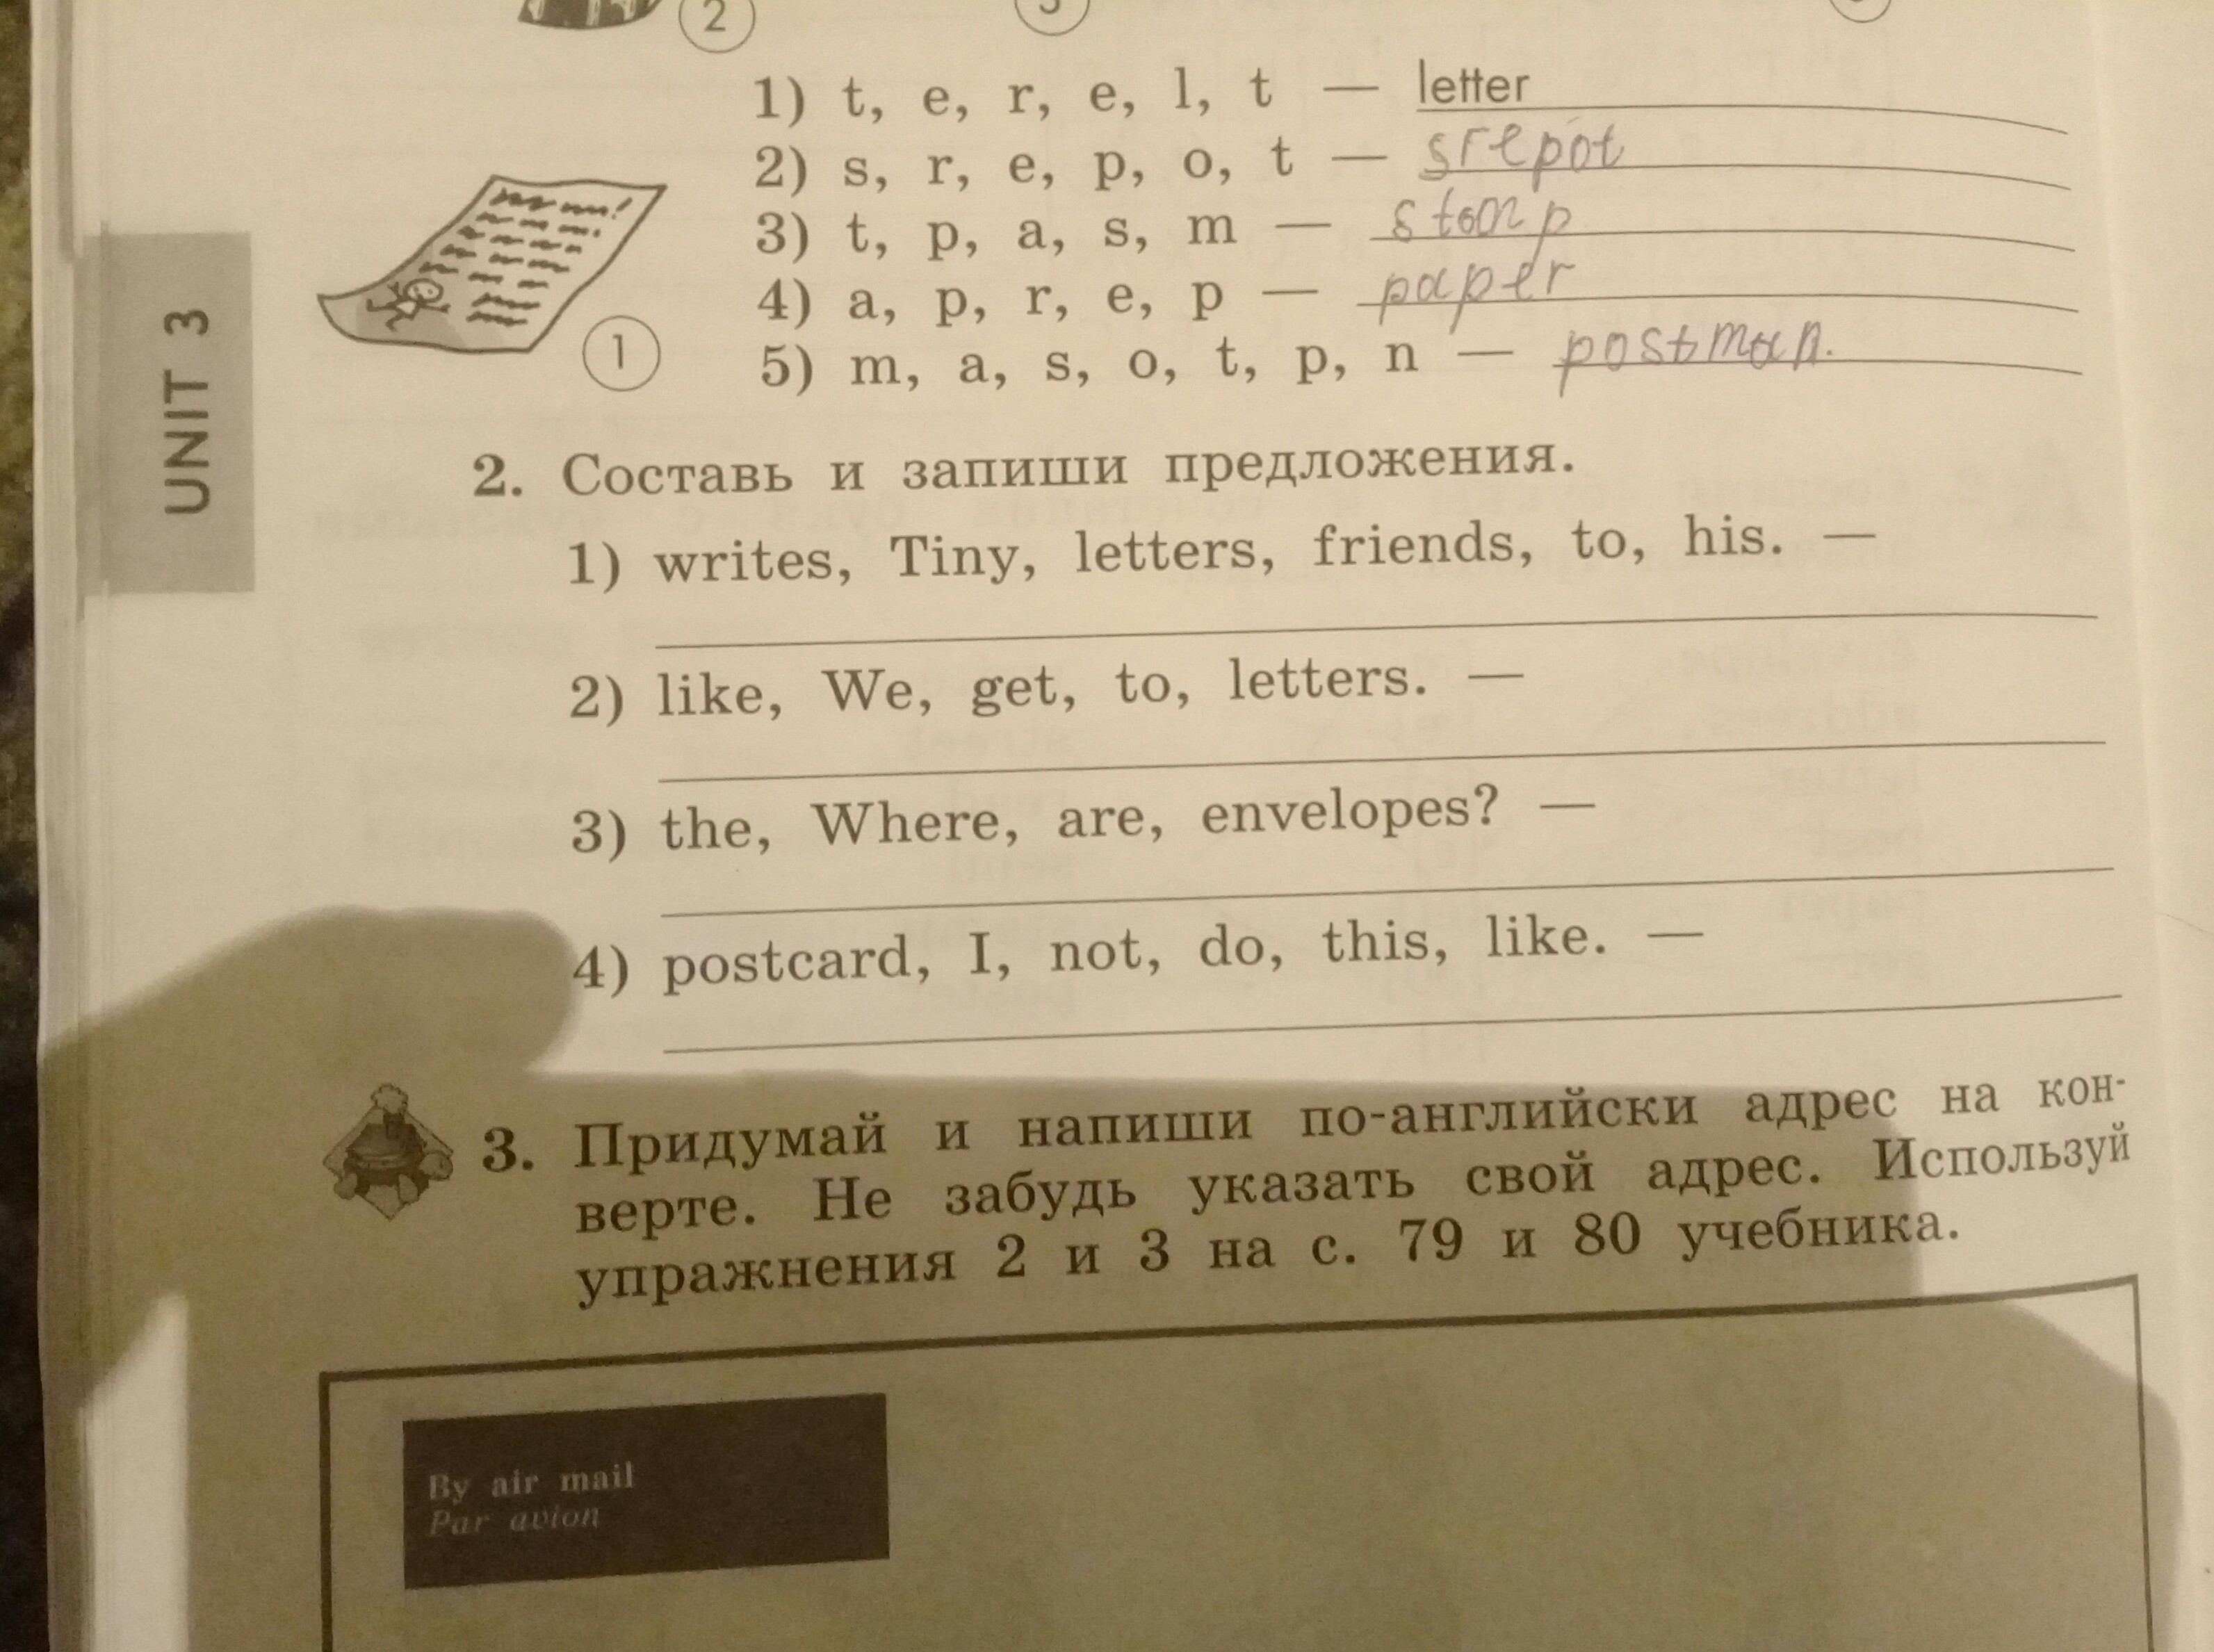 2
1) t, e, r, e, l, t — letter
2) s, r, e, p, o, t — srepot
3) t, p, a, s, m — stamp
4) a, p, r, e, p — paper
1
5) m, a, s, o, t, p, n — postman.
UNIT 3
2. Составь и запиши предложения.
1) writes, Tiny, letters, friends, to, his. —
2) like, We, get, to, letters. —
3) the, Where, are, envelopes? —
4) postcard, I, not, do, this, like. —
3. Придумай и напиши по-английски адрес на кон-
верте. Не забудь указать свой адрес. Используй
упражнения 2 и 3 на с. 79 и 80 учебника.
By air mail
Par avion